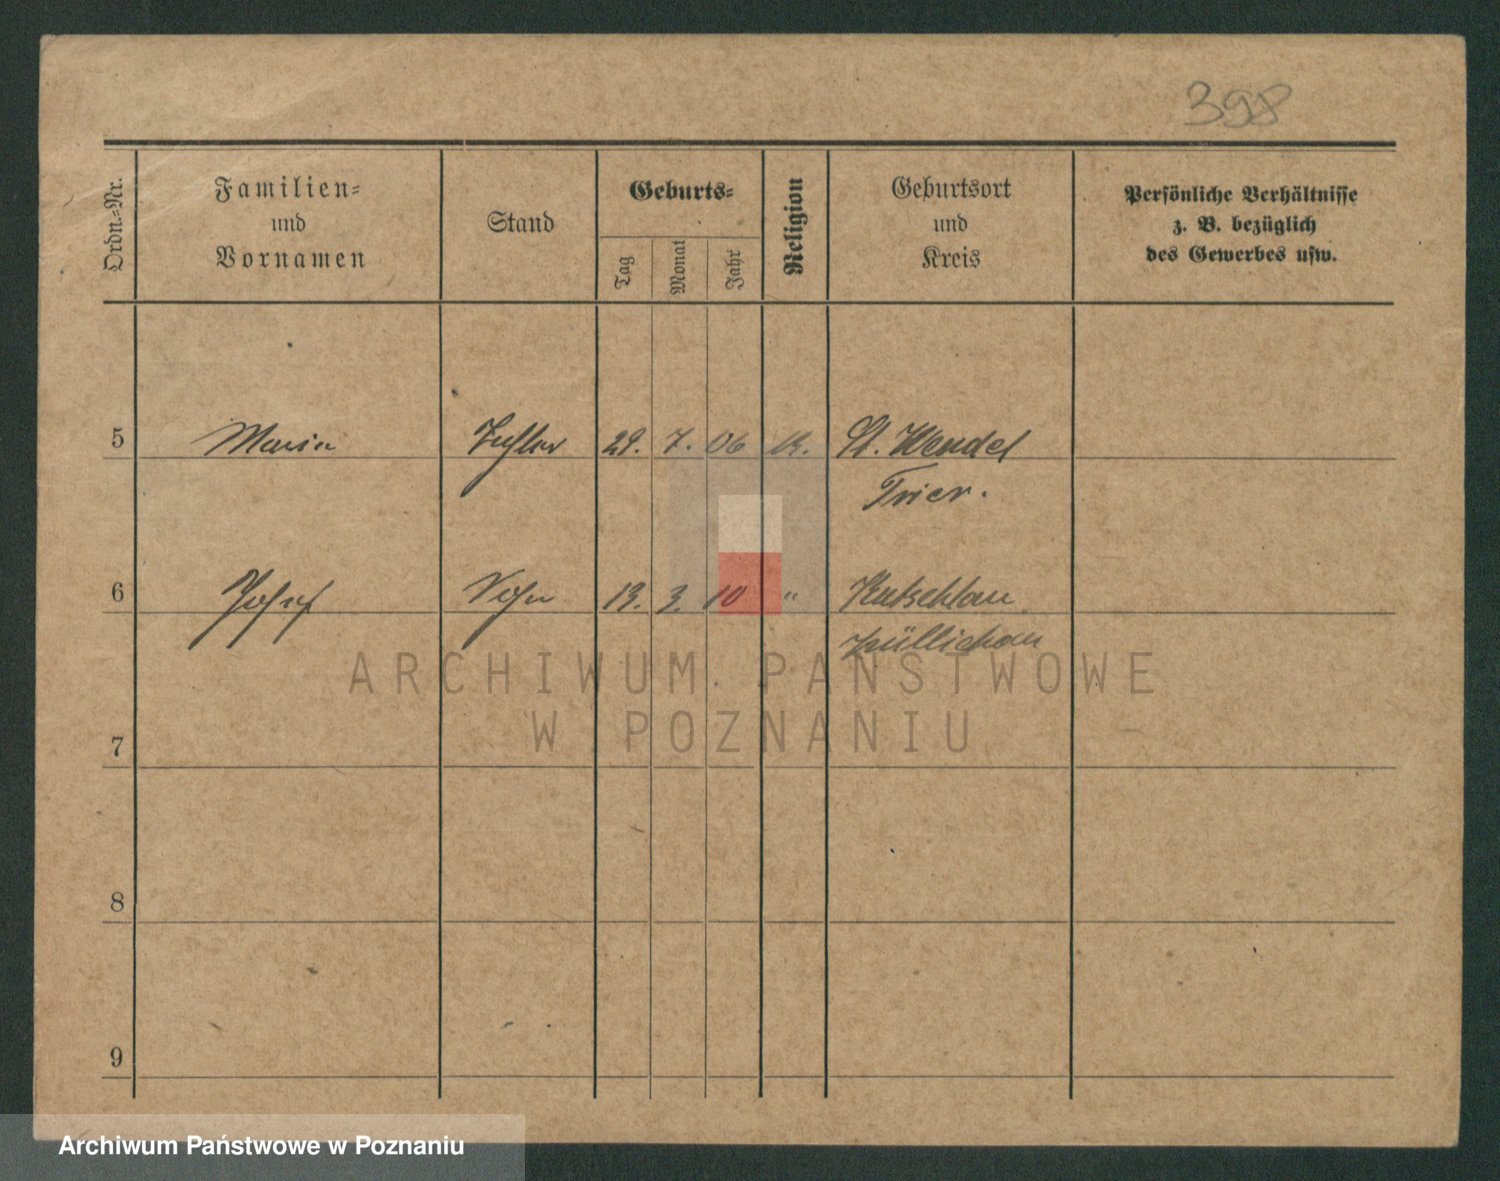 398
Ordn.-Nr.
Familien-
und
Vornamen
Stand
Geburts-
Tag
Monat
Jahr
Religion
Geburtsort
und
Kreis
Persönliche Verhältnisse
z. B. bezüglich
des Gewerbes usw.
5 Maria Tochter 29. 7. 06 St. Wendel
Trier.
6 Josef Sohn 13. 3. 10 " Kutschlau
Züllichau
7
8
9
ARCHIWUM PAŃSTWOWE
W POZNANIU
Archiwum Państwowe w Poznaniu